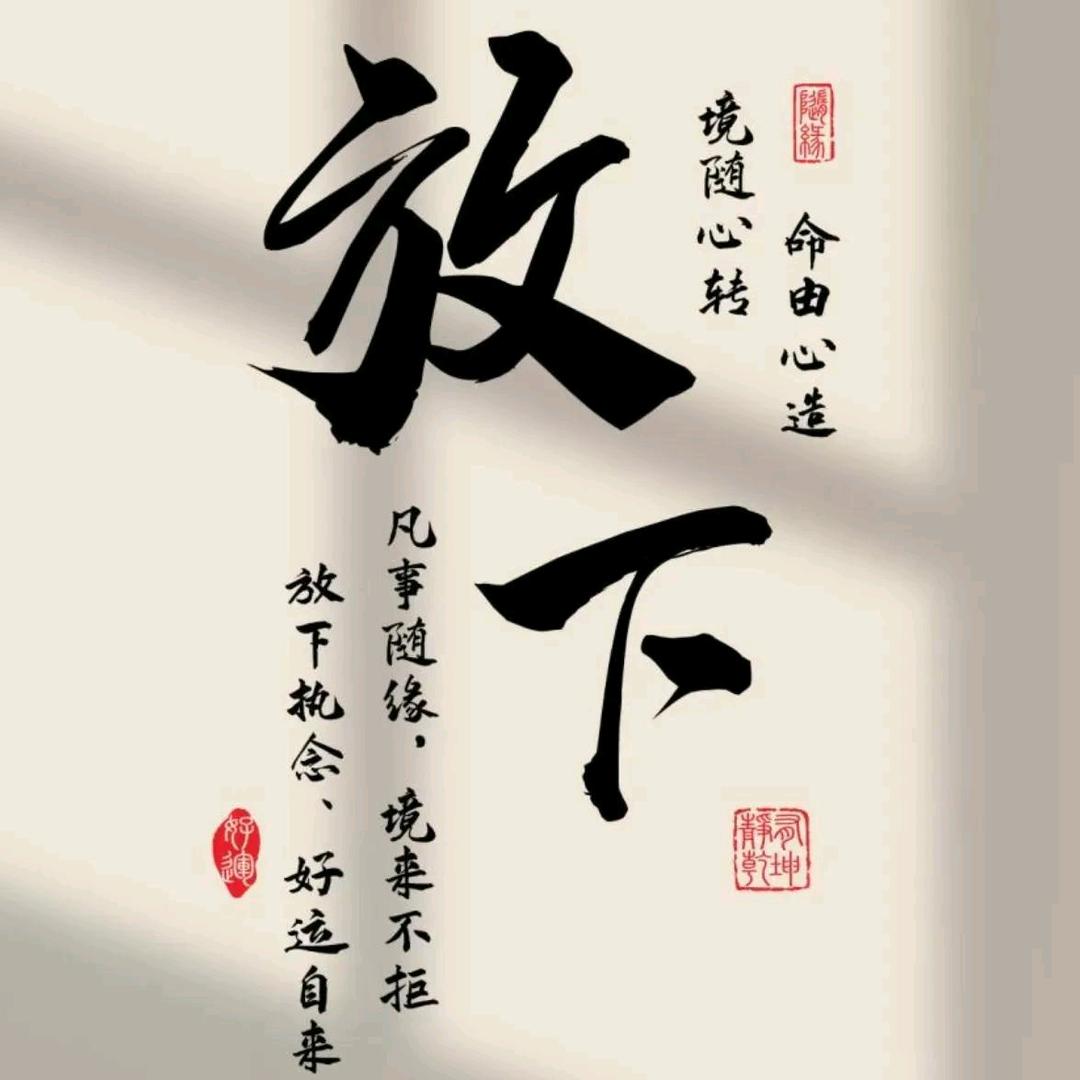 随缘
命由心造
境随心转
放下
凡事随缘，境来不拒
放下执念、好运自来
静有乾坤
好運